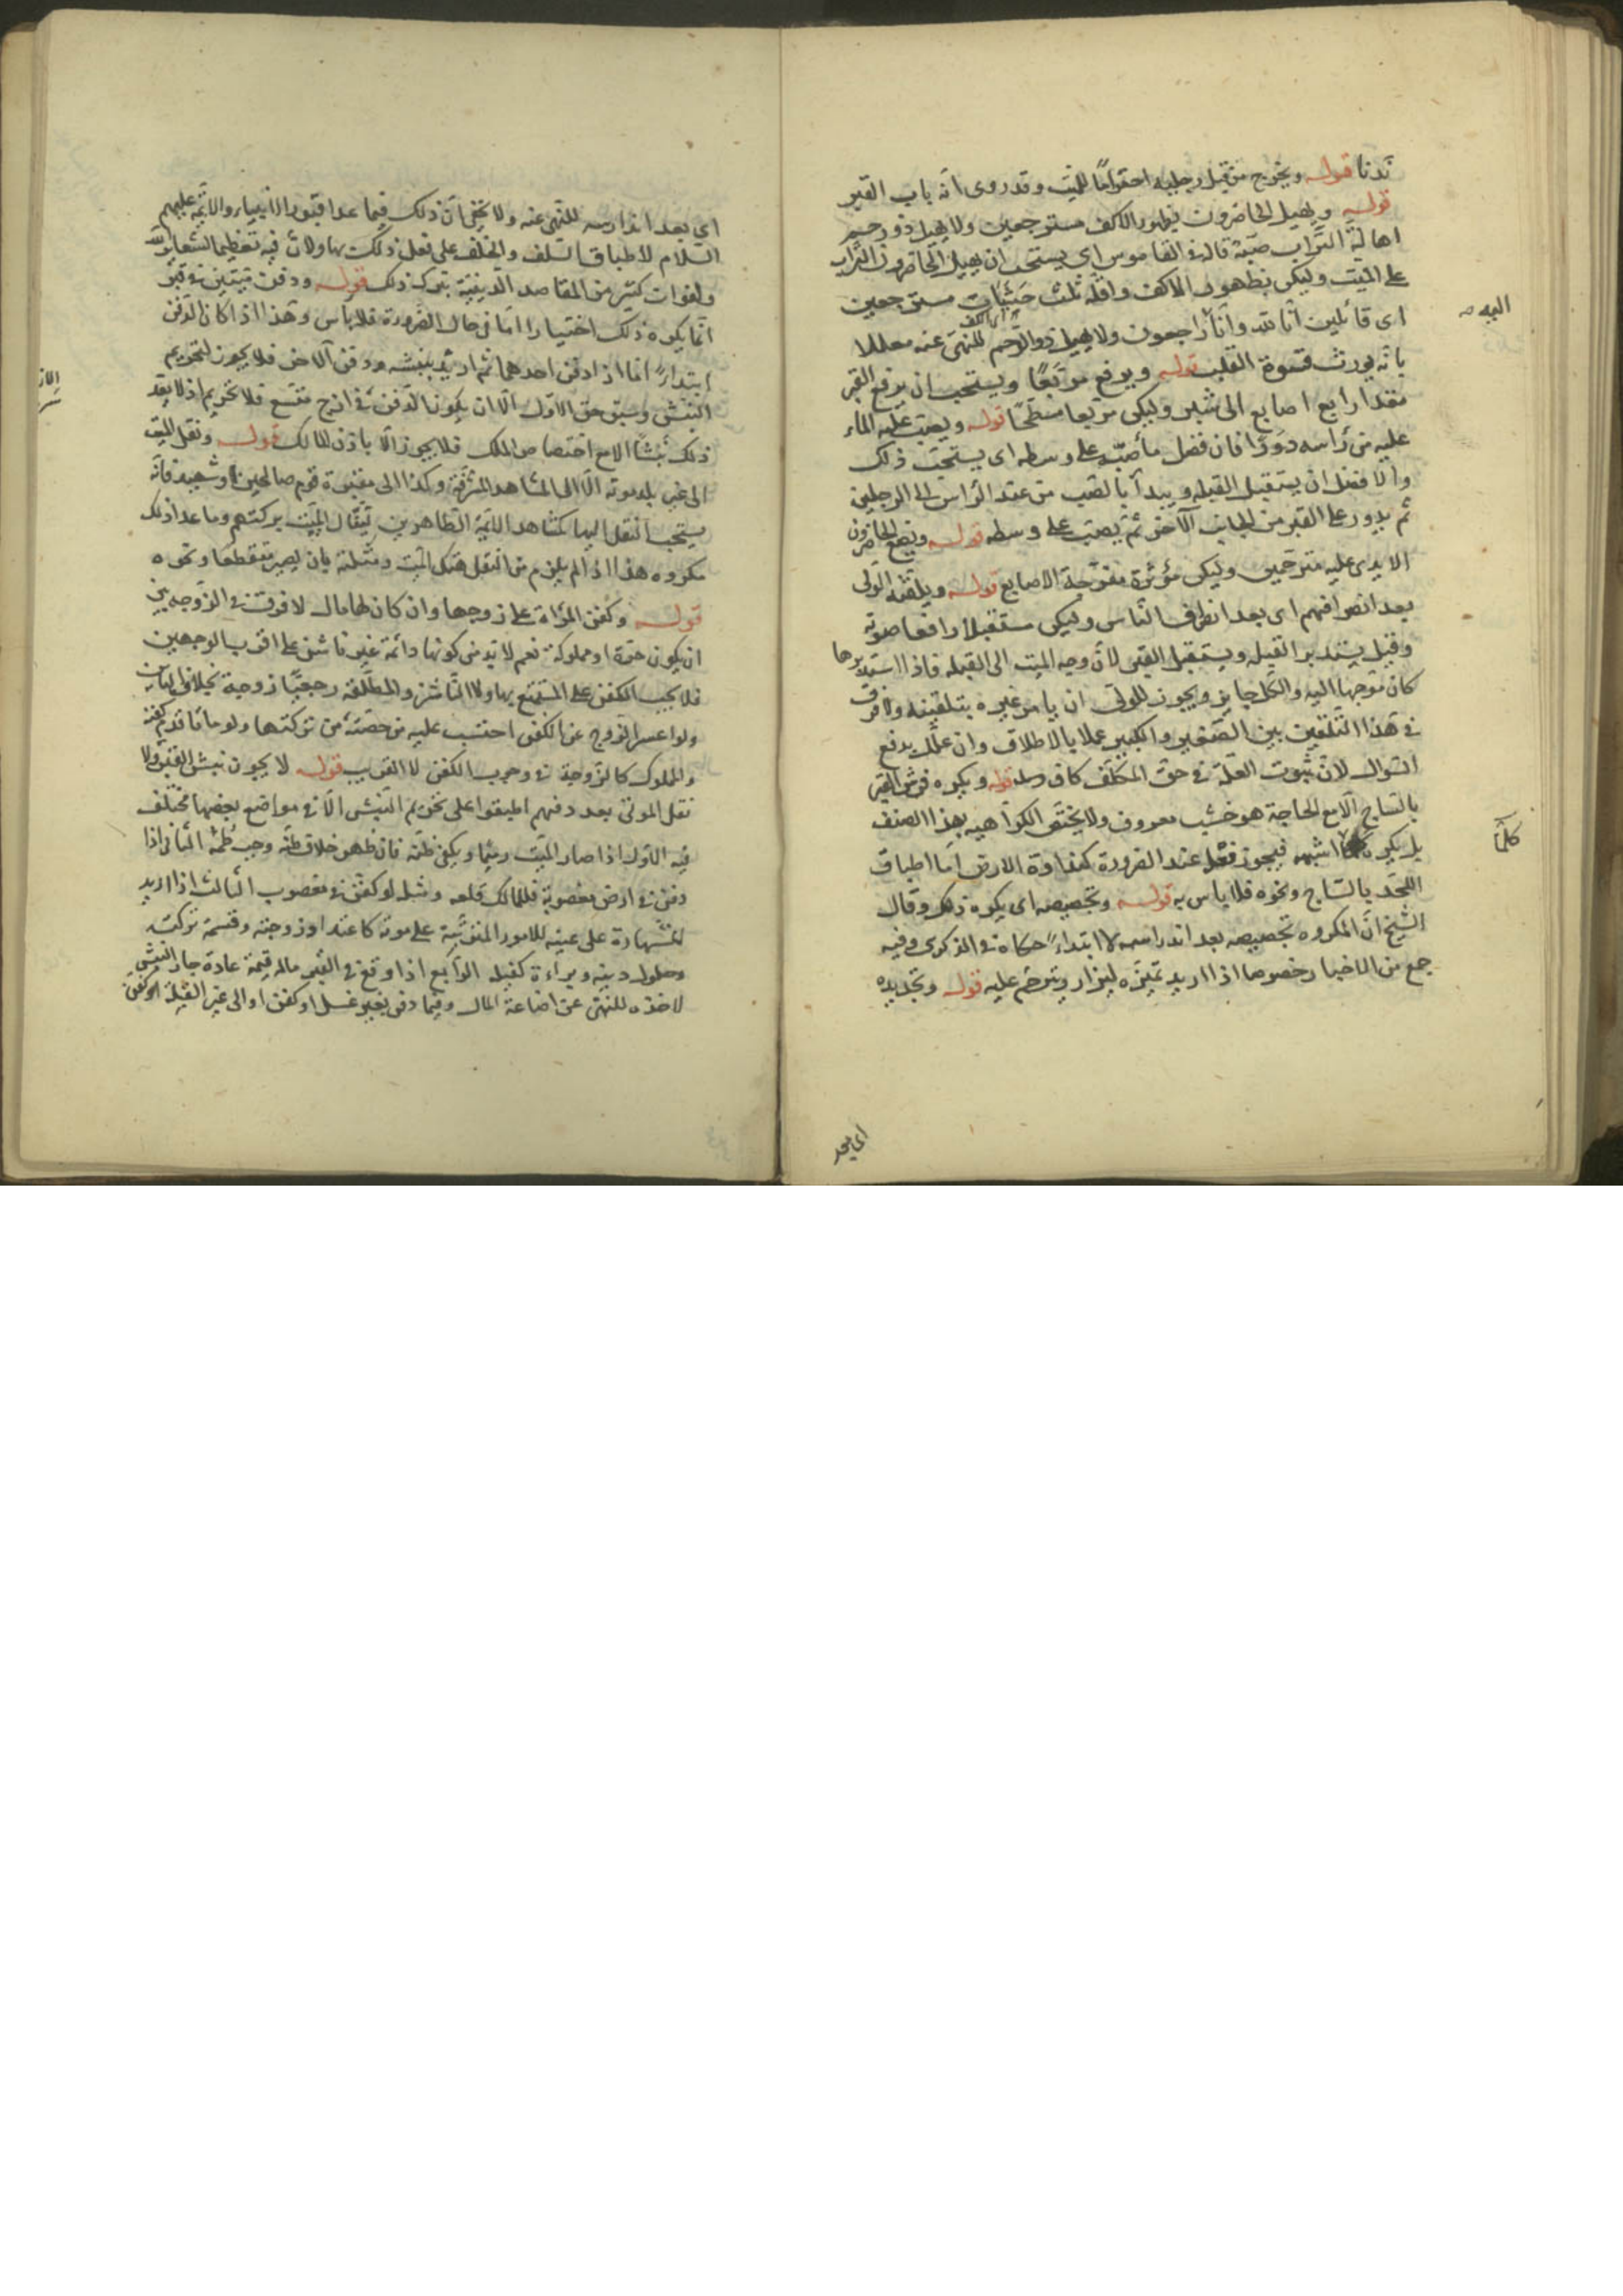 ندنا قوله ويخرج من قبل رجليه احتراما للميت وقد روى انه باب القبر
قوله ويهيل الحاضرون بظهور الاكف مسترجعين ولا يهيل ذو رحم
اهالة التراب صبه قال في القاموس اى يستحب ان يهيل الحاضرون التراب
على الميت وليكن بظهور الاكف واقله ثلث حثيات مسترجعين
اى قائلين انا لله وانا اليه راجعون ولا يهيل ذو الرحم للنهى عنه معللا
بانه يورث قسوة القلب قوله ويرفع مربعا ويستحب ان يرفع القبر
مقدار اربع اصابع الى شبر وليكن مربعا مسطحا قوله ويصب عليه الماء
عليه من راسه دورا فان فضل ماء صبه على وسطه اى يستحب ذلك
والافضل ان يستقبل القبله ويبدأ بالصب من عند الراس الى الرجلين
ثم يدور على القبر من الجانب الآخر ثم يصب على وسطه قوله ويضع الحاضرون
الايدى عليه مترحمين وليكن مؤثرة مفرجة الاصابع قوله ويلقنه الولى
بعد انصرافهم اى بعد انصراف الناس وليكن مستقبلا رافعا صوته
وقيل يستدبر القبله ويستقبل القبر لان وجه الميت الى القبله فاذا استدبرها
كان متوجها اليه والكل جايز ويجوز للولى ان يامر غيره بتلقينه ولا فرق
فى هذا التلقين بين الصغير والكبير عملا بالاطلاق وان علل بدفع
السوال لان ثبوت العلة فى حق المكلف كاف قوله ويكره فرش القبر
بالساج الا مع الحاجة هو خشب معروف ولا يختص الكراهيه بهذا الصنف
بل يكره كلما اشبهه فيجوز فعله عند الضرورة كنداوة الارض اما اطباق
اللحد بالساج ونحوه فلا باس به قوله وتجصيصه اى يكره ذلك وقال
الشيخ ان المكروه تجصيصه بعد اندراسه لا ابتداء حكاه فى الذكرى وفيه
جمع من الاخبار خصوصا اذا اريد تميزه ليزار ويترحم عليه قوله وتجديده
اى بعد
اى بعد اندارسه للنهى عنه ولا يخفى ان ذلك فيما عدا قبور الانبياء والائمة عليهم
السلام لاطباق السلف والخلف على فعل ذلك بها ولان فيه تعظيما لشعاير الله
ولفوات كثير من المقاصد الدينية بترك ذلك قوله ودفن ميتين فى قبر
انما يكره ذلك اختيارا اما فى حال الضرورة فلا باس وهذا اذا كان الدفن
ابتداء اما اذا دفن احدهما ثم اريد نبشه ودفن الآخر فلا يجوز لتحريم
النبش وسبق حق الاول الا ان يكون الدفن فى ازج متسع فلا تحريم اذ لا يعد
ذلك نبشا الا مع اختصاص الملك فلا يجوز الا باذن المالك قوله ونقل الميت
الى غير بلد موته الا الى المشاهد المشرفة وكذا الى مقبرة قوم صالحين او شهيد فانه
يستحب النقل اليها كمشاهد الائمة الطاهرين لينال الميت بركتهم وما عدا ذلك
مكروه هذا اذا لم يلزم من النقل هتك الميت ومثلته بان يصير متقطعا ونحوه
قوله وكفن المراة على زوجها وان كان لها مال لا فرق فى الزوجه بين
ان يكون حرة او مملوكة نعم لا بد من كونها دائمة غير ناشز على اقرب الوجهين
فلا يجب الكفن على المستمتع بها ولا الناشز والمطلقة رجعيا زوجة بخلاف الباين
ولو اعسر الزوج عن الكفن احتسب عليه من حصته من تركتها ولو ماتا قدم كفنه
والمملوك كالزوجة فى وجوب الكفن لا القريب قوله لا يجوز نبش القبر ولا
نقل الموتى بعد دفنهم اطبقوا على تحريم النبش الا فى مواضع بعضها مختلف
فيه الاول اذا صار الميت رميما ويكفى ظنه فان ظهر خلاف ظنه وجب طمه الثانى اذا
دفن فى ارض مغصوبة فللمالك قلعه ومثله لو كفن فى مغصوب الثالث اذا اريد
الشهادة على عينه للامور المترتبة على موته كاعتداد زوجته وقسمة تركته
وحلول دينه وبراءة كفيله الرابع اذا وقع فى القبر ماله قيمة عادة جاز النبش
لاخذه للنهى عن اضاعة المال وفيما دفن بغير غسل او كفن او الى غير القبلة او كفن
اليه
كلما